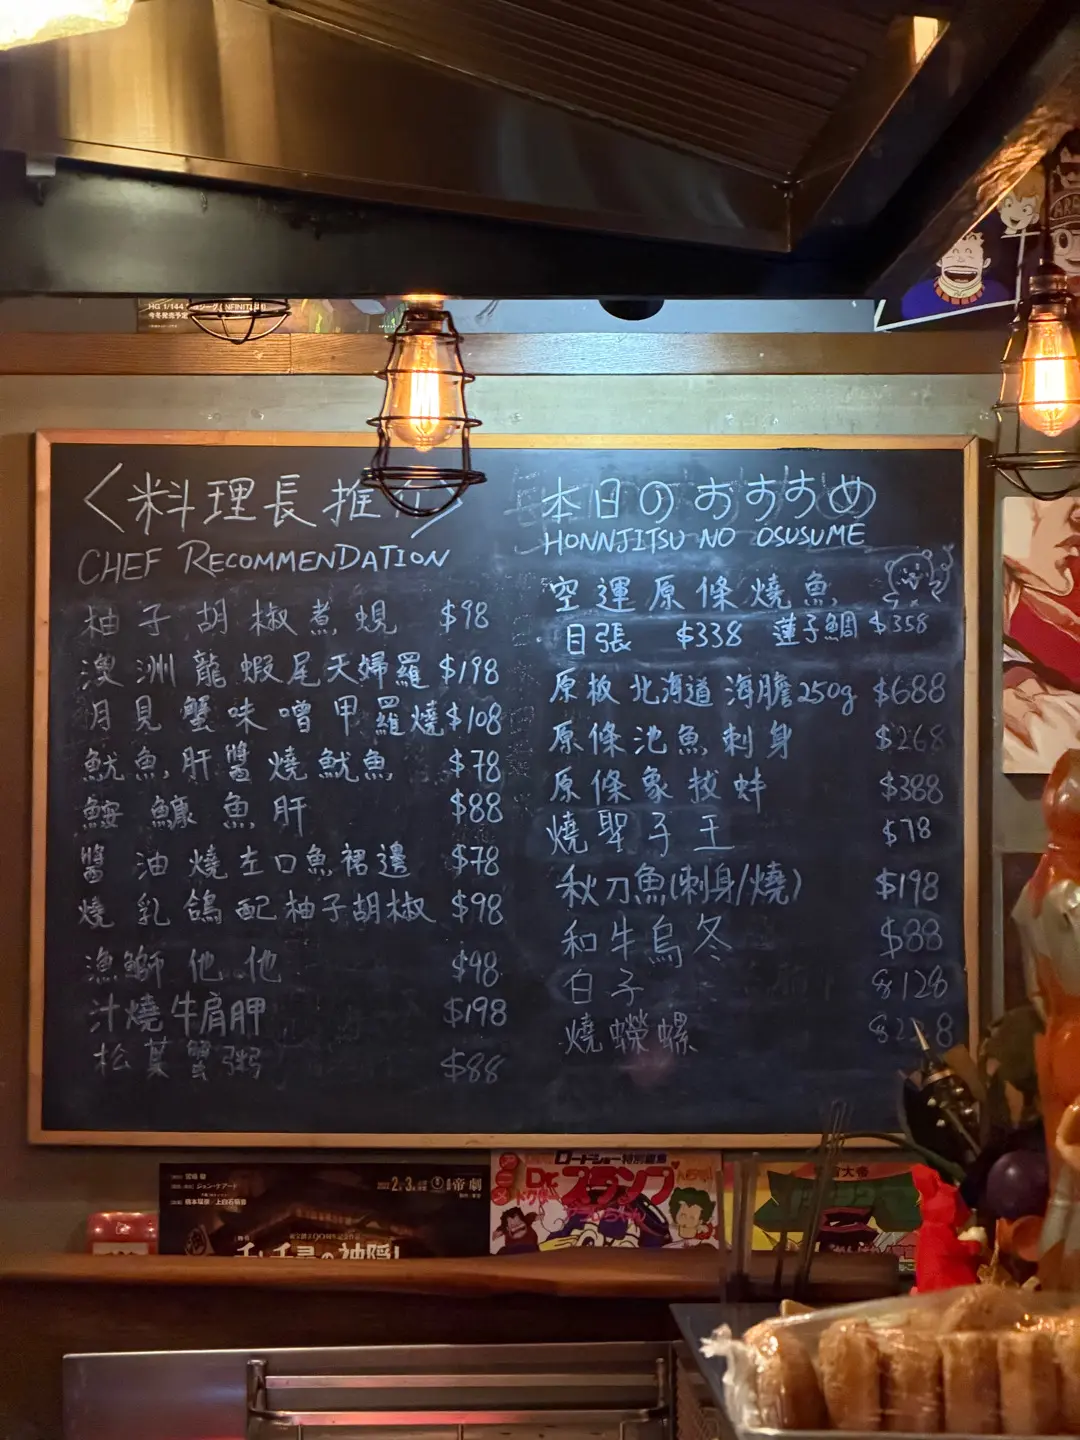 HG 1/144
今冬発売予定
〈料理長推介〉
CHEF RECOMMENDATION
柚子胡椒煮蜆 $98
澳洲龍蝦尾天婦羅 $198
月見蟹味噌甲羅燒 $108
魷魚肝醬燒魷魚 $78
鮟鱇魚肝 $88
醬油燒左口魚裙邊 $78
燒乳鴿配柚子胡椒 $98
漁鰤他他 $98
汁燒牛肩胛 $198
松葉蟹粥 $88
本日のおすすめ
HONNJITSU NO OSUSUME
空運原條燒魚
目張 $338 蓮子鯛 $358
原板北海道海膽250g $688
原條池魚刺身 $268
原條象拔蚌 $388
燒墾子王 $78
秋刀魚(刺身/燒) $198
和牛烏冬 $88
白子 $128
燒蠑螺
2. 3.
帝劇
千と千尋の神隠し
ロードショー特別編集
Dr.スランプ